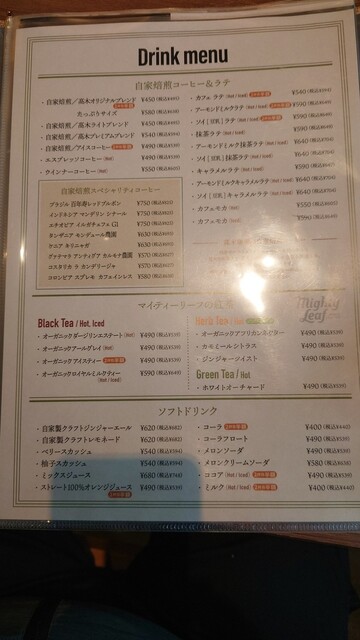 Drink menu
自家焙煎コーヒー&ラテ
・自家焙煎／高木オリジナルブレンド ¥450(税込¥495)
たっぷりサイズ ¥580
・自家焙煎／高木ライトブレンド ¥450(税込¥495)
・自家焙煎／高木プレミアムブレンド ¥540(税込¥594)
・自家焙煎／アイスコーヒー ¥490(税込¥539)
・エスプレッソコーヒー(Hot) ¥490(税込¥539)
・ウインナーコーヒー(Hot) ¥550
自家焙煎スペシャリティコーヒー
ブラジル 百年寿レッドブルボン ¥750
インドネシア マンデリン シナール ¥750
エチオピア イルガチェフェ G1 ¥750
タンザニア モンデュール農園 ¥630
ケニア キリニャガ ¥630
グァテマラ ブンティグア カルモナ農園 ¥570
コスタリカ ラ カンデリージャ ¥570
コロンビア スプレモ カフェインレス ¥580
・カフェ ラテ (Hot / Iced) ¥540(税込¥594)
・アーモンドミルクラテ (Hot / Iced) ¥590
・ソイ［豆乳］ラテ (Hot / Iced) ¥590
・抹茶ラテ (Hot / Iced) ¥590
・アーモンドミルク抹茶ラテ (Hot / Iced) ¥640
・ソイ［豆乳］抹茶ラテ (Hot / Iced) ¥640
・キャラメルラテ (Hot / Iced) ¥590
・アーモンドミルクキャラメルラテ (Hot / Iced) ¥640
・ソイ［豆乳］キャラメルラテ (Hot / Iced) ¥640
・カフェモカ (Hot) ¥550
・カフェモカ (Iced) ¥590
マイティーリーフの紅茶
Mighty Leaf
Black Tea / Hot, Iced
・オーガニックダージリンエステート (Hot) ¥490(税込¥539)
・オーガニックアールグレイ (Hot) ¥490(税込¥539)
・オーガニックアイスティー ¥490(税込¥539)
・オーガニックロイヤルミルクティー ¥590(税込¥649)
(Hot / Iced)
Herb Tea / Hot
・オーガニックアフリカンネクター ¥490(税込¥539)
・カモミールシトラス ¥490(税込¥539)
・ジンジャーツイスト ¥490(税込¥539)
Green Tea / Hot
・ホワイトオーチャード ¥490(税込¥539)
ソフトドリンク
・自家製クラフトジンジャーエール ¥620(税込¥682)
・自家製クラフトレモネード ¥620(税込¥682)
・ベリースカッシュ ¥540(税込¥594)
・柚子スカッシュ ¥540(税込¥594)
・ミックスジュース ¥680(税込¥748)
・ストレート100%オレンジジュース ¥490(税込¥539)
・コーラ ¥400(税込¥440)
・コーラフロート ¥490(税込¥539)
・メロンソーダ ¥490(税込¥539)
・メロンクリームソーダ ¥580(税込¥638)
・ココア (Hot / Iced) ¥490(税込¥539)
・ミルク (Hot / Iced) ¥400(税込¥440)